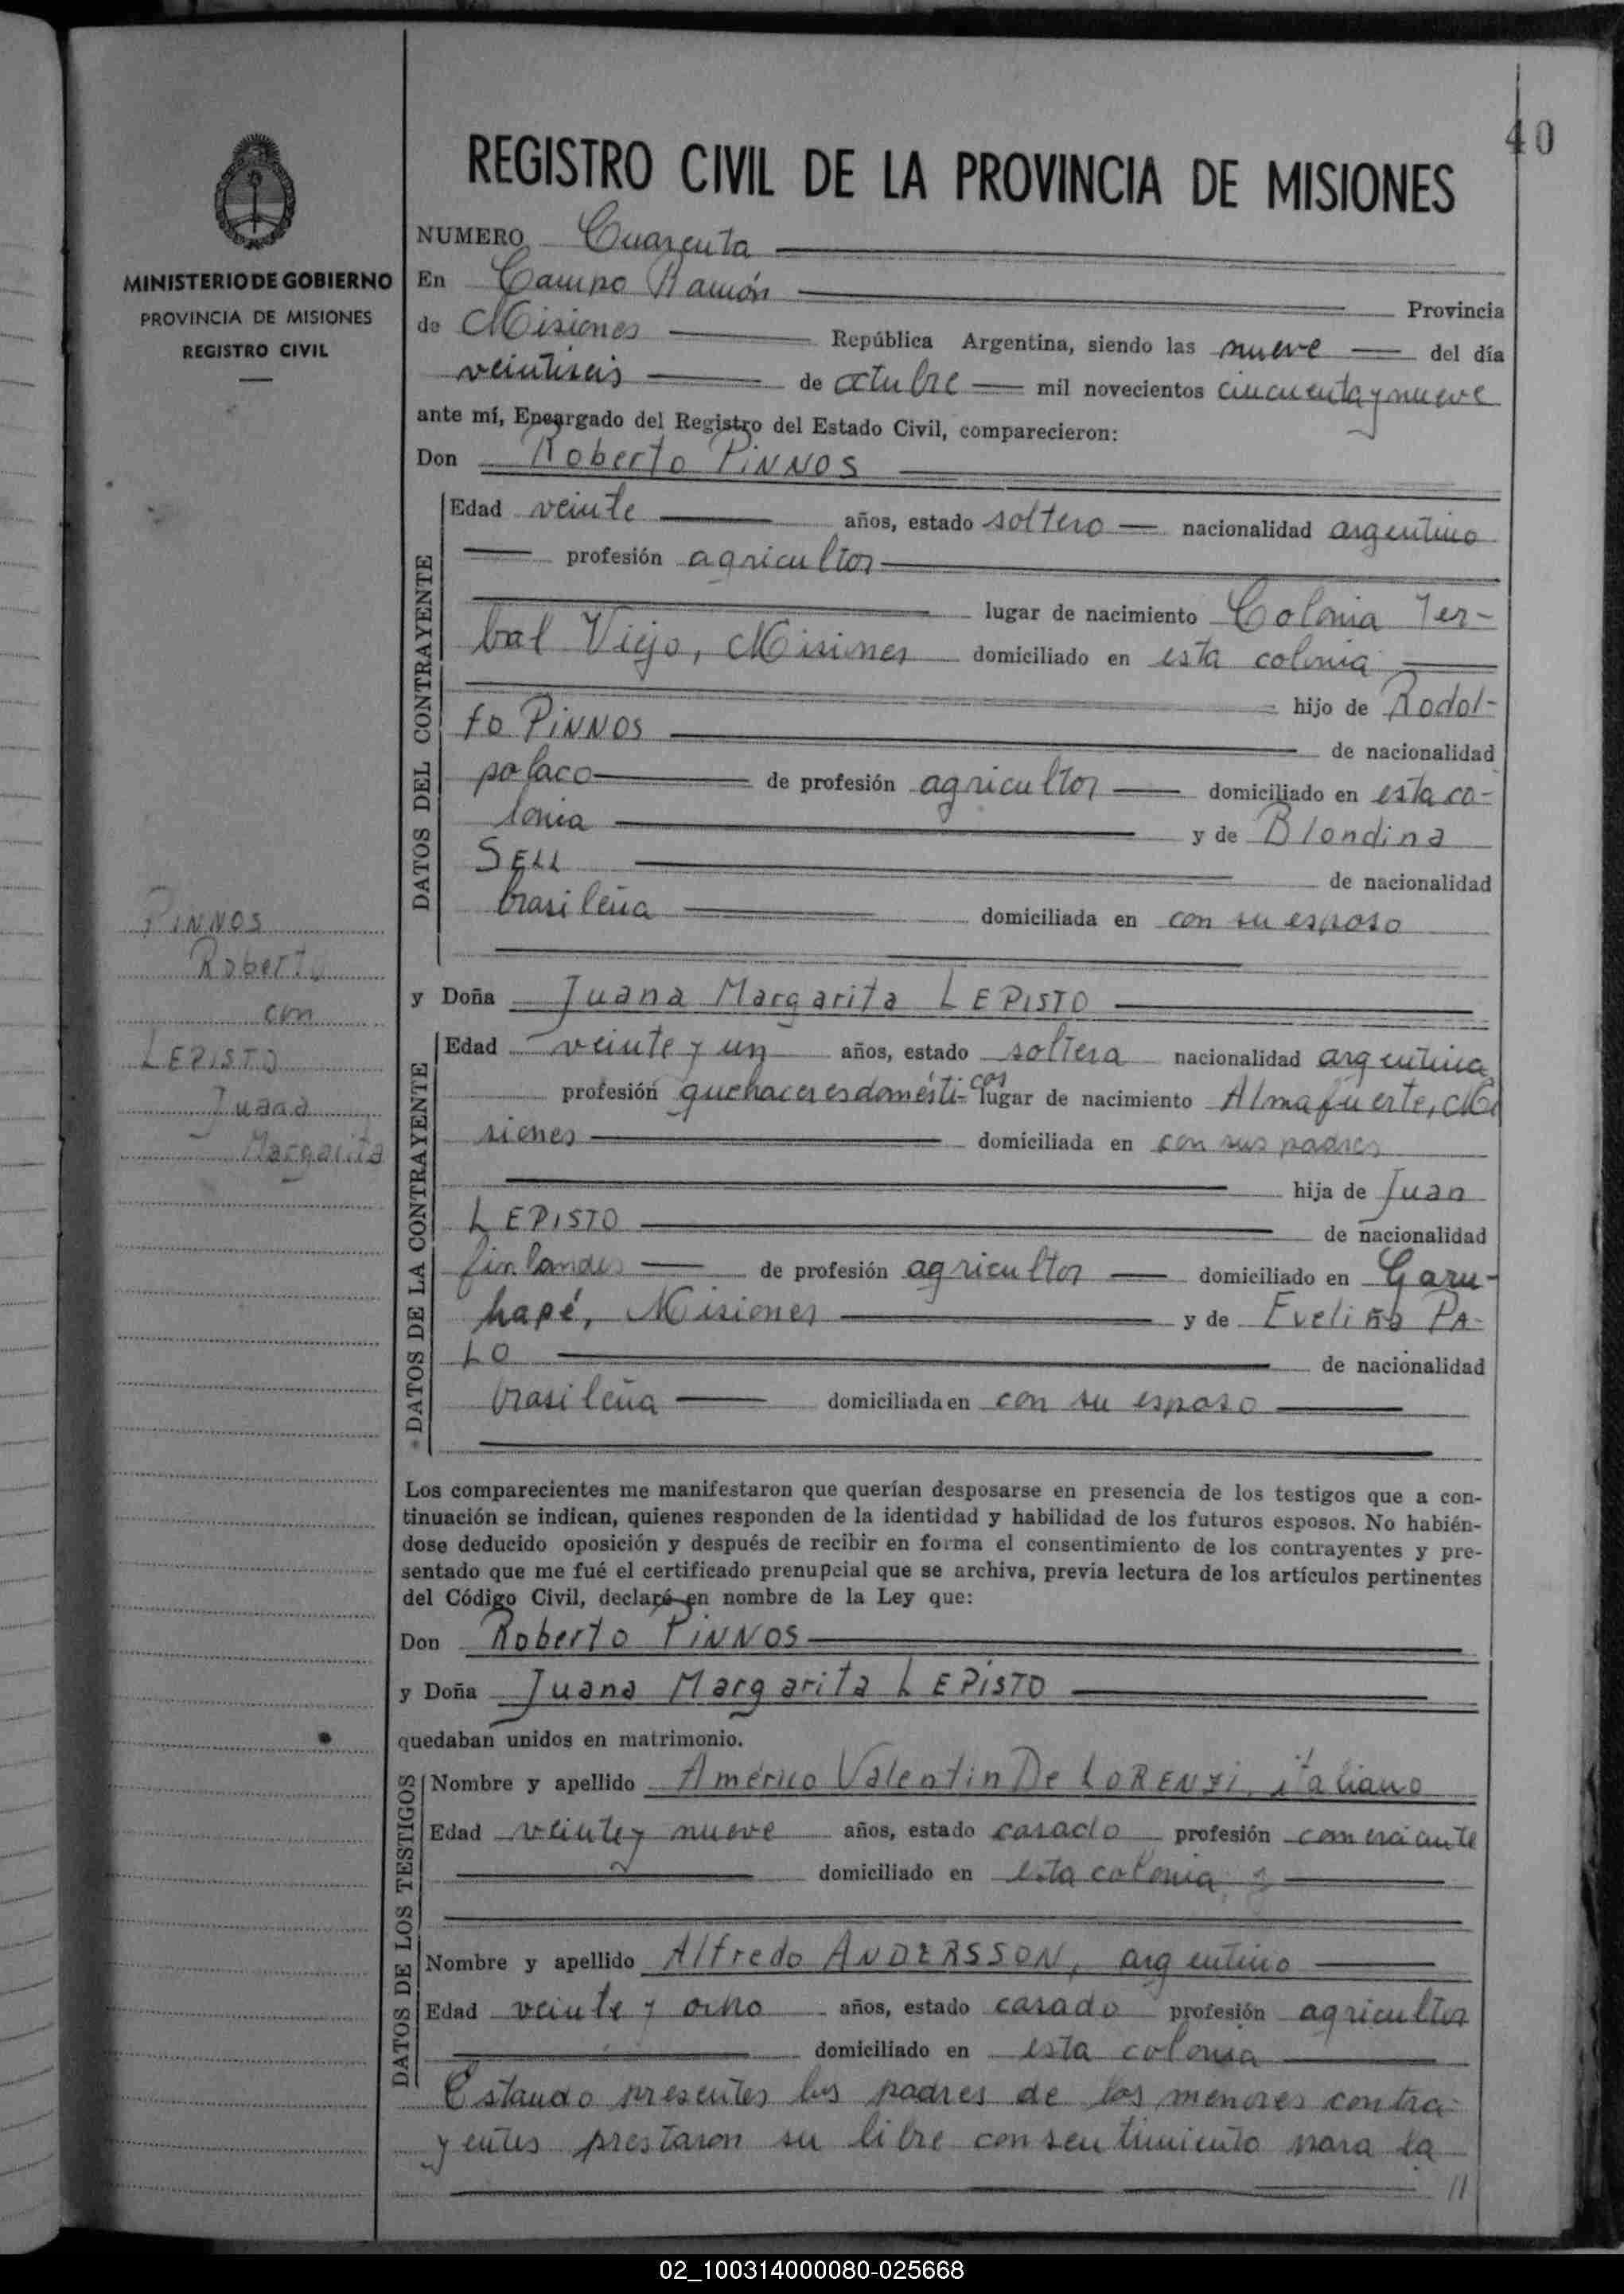 40
REGISTRO CIVIL DE LA PROVINCIA DE MISIONES
MINISTERIO DE GOBIERNO
PROVINCIA DE MISIONES
REGISTRO CIVIL
NUMERO Cuarenta
En Campo Ramón Provincia
de Misiones República Argentina, siendo las nueve del día
veintiseis de octubre mil novecientos cincuenta y nueve
ante mí, Encargado del Registro del Estado Civil, comparecieron:
Don Roberto PINNOS
DATOS DEL CONTRAYENTE
Edad veinte años, estado soltero nacionalidad argentino
profesión agricultor
lugar de nacimiento Colonia Yer-
bal Viejo, Misiones domiciliado en esta colonia
hijo de Rodol-
fo PINNOS de nacionalidad
polaco de profesión agricultor domiciliado en esta co-
lonia y de Blondina
SELL de nacionalidad
brasileña domiciliada en con su esposo
PINNOS
Roberto
con
LEPISTO
Juana
Margarita
y Doña Juana Margarita LEPISTO
DATOS DE LA CONTRAYENTE
Edad veinte y un años, estado soltera nacionalidad argentina
profesión quehaceres domésti-cos lugar de nacimiento Almafuerte, Mi
siones domiciliada en con sus padres
hija de Juan
LEPISTO de nacionalidad
finlandes de profesión agricultor domiciliado en Garu-
hapé, Misiones y de Evelina PA-
LO de nacionalidad
brasileña domiciliada en con su esposo
Los comparecientes me manifestaron que querían desposarse en presencia de los testigos que a con-
tinuación se indican, quienes responden de la identidad y habilidad de los futuros esposos. No habién-
dose deducido oposición y después de recibir en forma el consentimiento de los contrayentes y pre-
sentado que me fué el certificado prenupcial que se archiva, previa lectura de los artículos pertinentes
del Código Civil, declaré en nombre de la Ley que:
Don Roberto PINNOS
y Doña Juana Margarita LEPISTO
quedaban unidos en matrimonio.
DATOS DE LOS TESTIGOS
Nombre y apellido Américo Valentin De LORENZI, italiano
Edad veinte y nueve años, estado casado profesión comerciante
domiciliado en esta colonia y
Nombre y apellido Alfredo ANDERSSON, argentino
Edad veinte y ocho años, estado casado profesión agricultor
domiciliado en esta colonia
Estando presentes los padres de los menores contra-
yentes prestaron su libre consentimiento para la
//
02_100314000080-025668